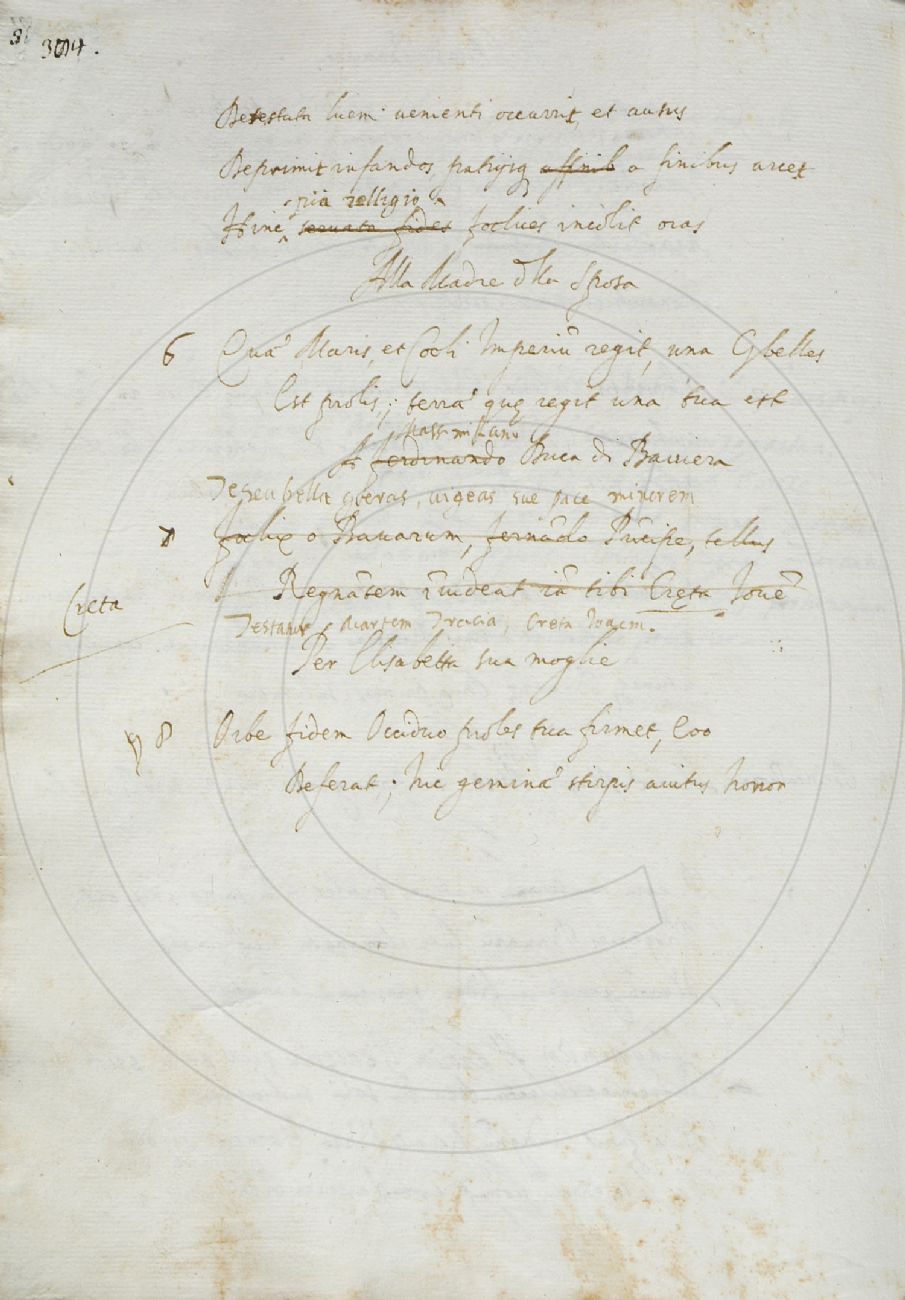 304.
Detestata luem venienti occurrit, et ausus
Deprimit infandos, patrijsq affinib a finibus arcet
pia relligio
Hinc servata fides foelices incolit oras
Alla Madre dlla Sposa
6 Quae Maris, et Coeli Imperiũ regit, una Cybelles
Est prolis; terrã quę regit una tua est
Massimiliano
A Ferdinando Duca di Baviera
Te seu bella geras, vigeas sue pace minorem
7 Foelix o Bavarum, Fernãdo Prĩcipe, tellus
Regnãtem ĩvideat iã tibi Creta Jovẽ
Creta
Testatur Martem Tracia, Creta Jovem.
Per Elisabetta sua moglie
8 Orbe fidem Occiduo proles tua firmet, Eoo
Deferat; hic geminae stirpis avitus honor